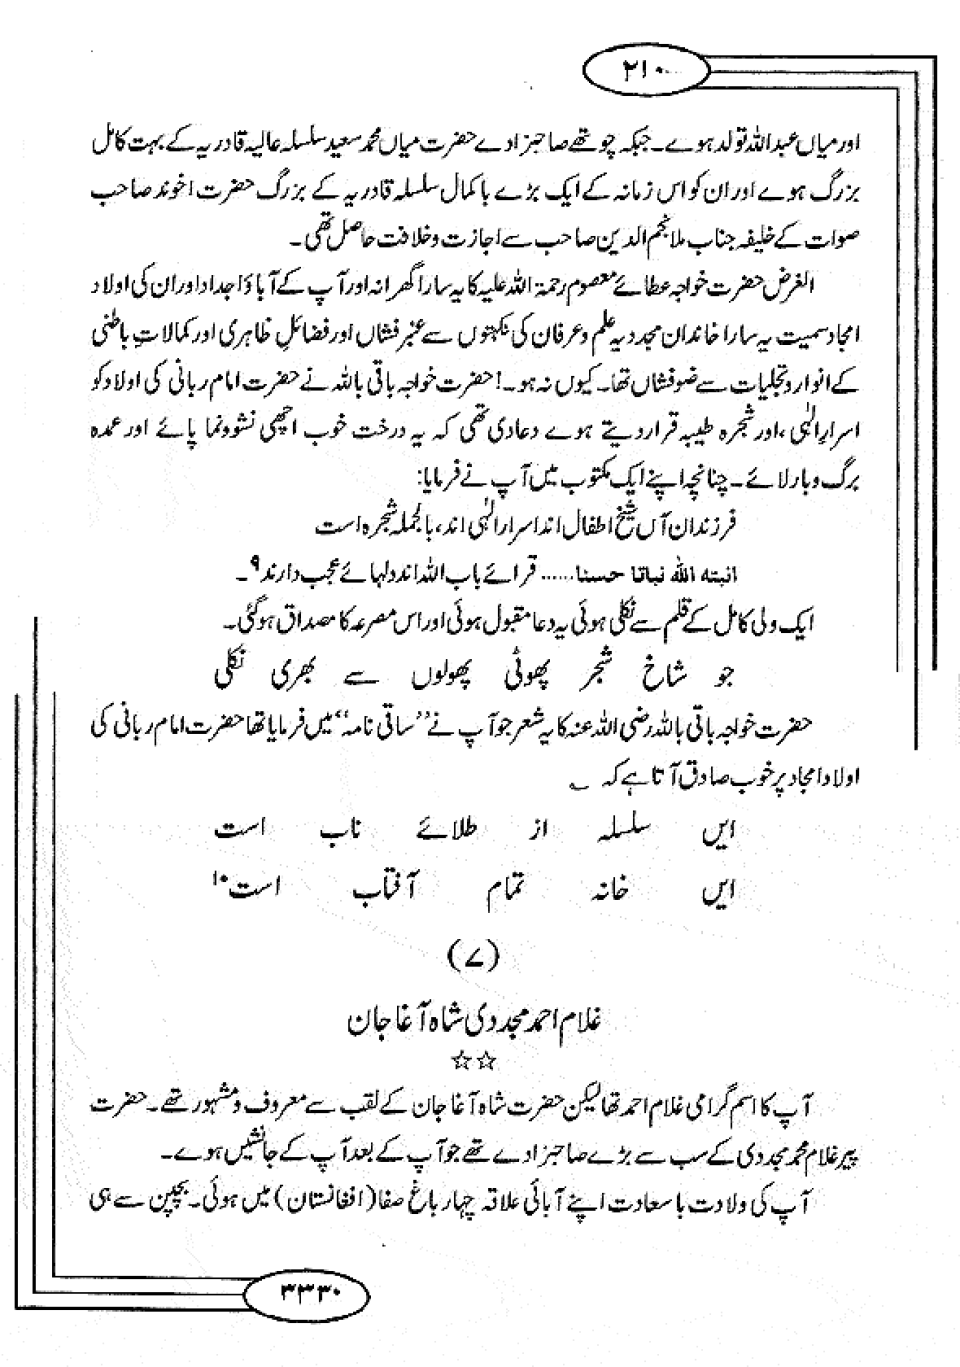 ۲۱۰
اور میاں عبداللہ تولد ہوے۔ جبکہ چوتھے صاحبزادے حضرت میاں محمد سعید سلسلہ عالیہ قادریہ کے بہت کامل
بزرگ ہوے اور ان کو اس زمانہ کے ایک بڑے باکمال سلسلہ قادریہ کے بزرگ حضرت اخوند صاحب
صوات کے خلیفہ جناب ملا نجم الدین صاحب سے اجازت وخلافت حاصل تھی۔
الغرض حضرت خواجہ عطائے معصوم رحمۃ اللہ علیہ کا یہ سارا گھرانہ اور آپ کے آباؤ اجداد اور ان کی اولاد
امجاد سمیت یہ سارا خاندان مجددیہ علم وعرفان کی نکہتوں سے عنبر فشاں اور فضائلِ ظاہری اور کمالاتِ باطنی
کے انوار وتجلیات سے ضوفشاں تھا۔ کیوں نہ ہو۔! حضرت خواجہ باقی باللہ نے حضرت امام ربانی کی اولاد کو
اسرارِ الٰہی ،اور شجرہ طیبہ قرار دیتے ہوے دعا دی تھی کہ یہ درخت خوب اچھی نشوونما پائے اور عمدہ
برگ وبار لائے۔ چنانچہ اپنے ایک مکتوب میں آپ نے فرمایا:
فرزندان آں شیخ اطفال اند اسرارِ الٰہی اند، بالجملہ شجرہ است
انبتہ اللہ نباتا حسنا...... قرائے باب اللہ اند دلہائے عجب دارند۹۔
ایک ولی کامل کے قلم سے نکلی ہوئی یہ دعا مقبول ہوئی اور اس مصرعہ کا مصداق ہوگئی۔
جو شاخ شجر پھوٹی پھولوں سے بھری نکلی
حضرت خواجہ باقی باللہ رضی اللہ عنہ کا یہ شعر جو آپ نے ”ساقی نامہ“ میں فرمایا تھا حضرت امام ربانی کی
اولاد امجاد پر خوب صادق آتا ہے کہ ؎
ایں سلسلہ از طلائے ناب است
ایں خانہ تمام آفتاب است۱۰
(۷)
غلام احمد مجددی شاہ آغا جان
☆☆
آپ کا اسم گرامی غلام احمد تھا لیکن حضرت شاہ آغا جان کے لقب سے معروف ومشہور تھے۔ حضرت
پیر غلام محمد مجددی کے سب سے بڑے صاحبزادے تھے جو آپ کے بعد آپ کے جانشیں ہوے۔
آپ کی ولادت باسعادت اپنے آبائی علاقہ چہار باغ صفا (افغانستان) میں ہوئی۔ بچپن سے ہی
۳۳۳۰